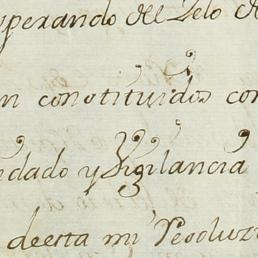 sperando del Zelo d
n constituidos con
edado y Vigilancia
deesta mi Resoluz